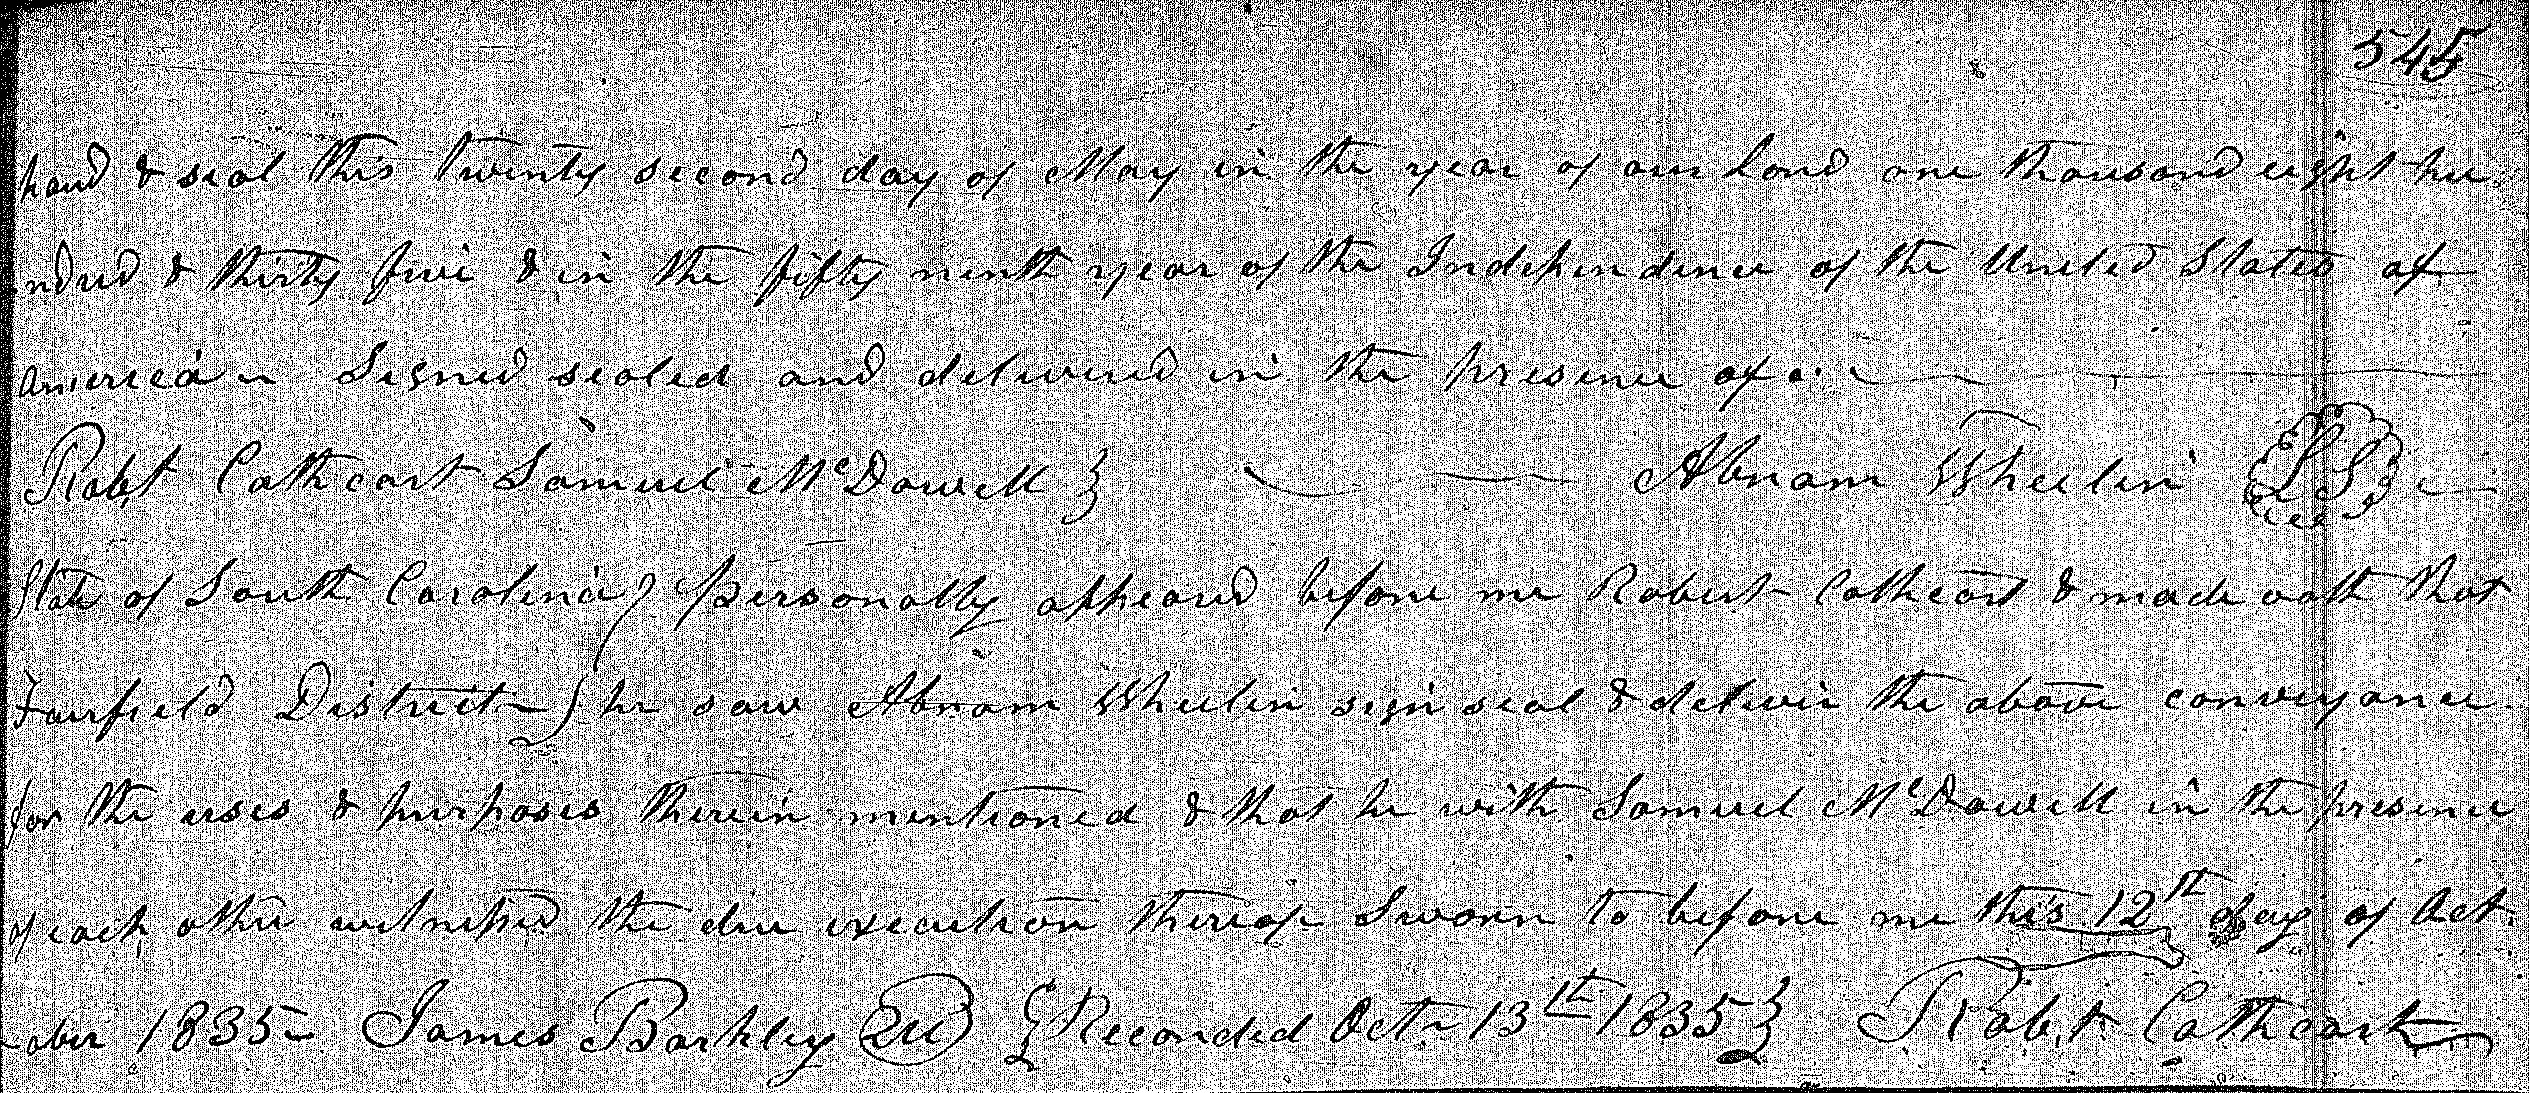 545
hand & seal this twenty second day of May in the year of our Lord one thousand eight hu
ndred & thirty five & in the fifty ninth year of the Independence of the United States of
america Signed sealed and delivered in the presence of
Robt Cathcart Samuel McDowell } Abram Wheelin L S
State of South Carolina } personally appeared before me Robert Cathcart & made oath that
Fairfield District } he saw Abram Wheelin sign seal & deliver the above conveyance
for the uses & purposes therein mentioned & that he with Samuel McDowell in the presence
of each other witnessed the due execution thereof Sworn to before me this 12th day of Oct
ober 1835 James Barkley QU { Recorded Oct 13th 1835 } Robt Cathcart